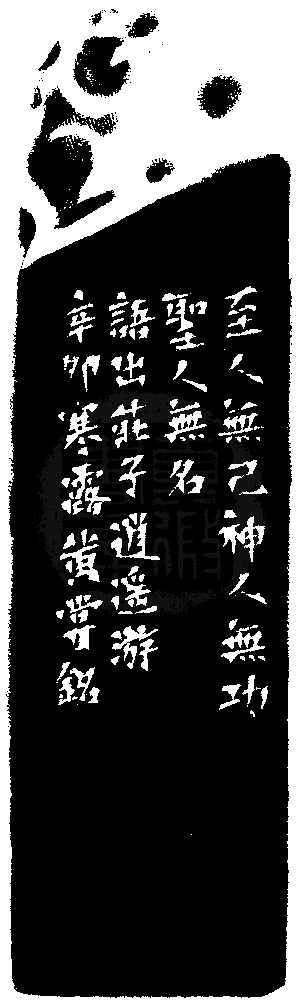 至人無己神人無功
聖人無名
語出莊子逍遥游
辛卯寒露黄嘗銘